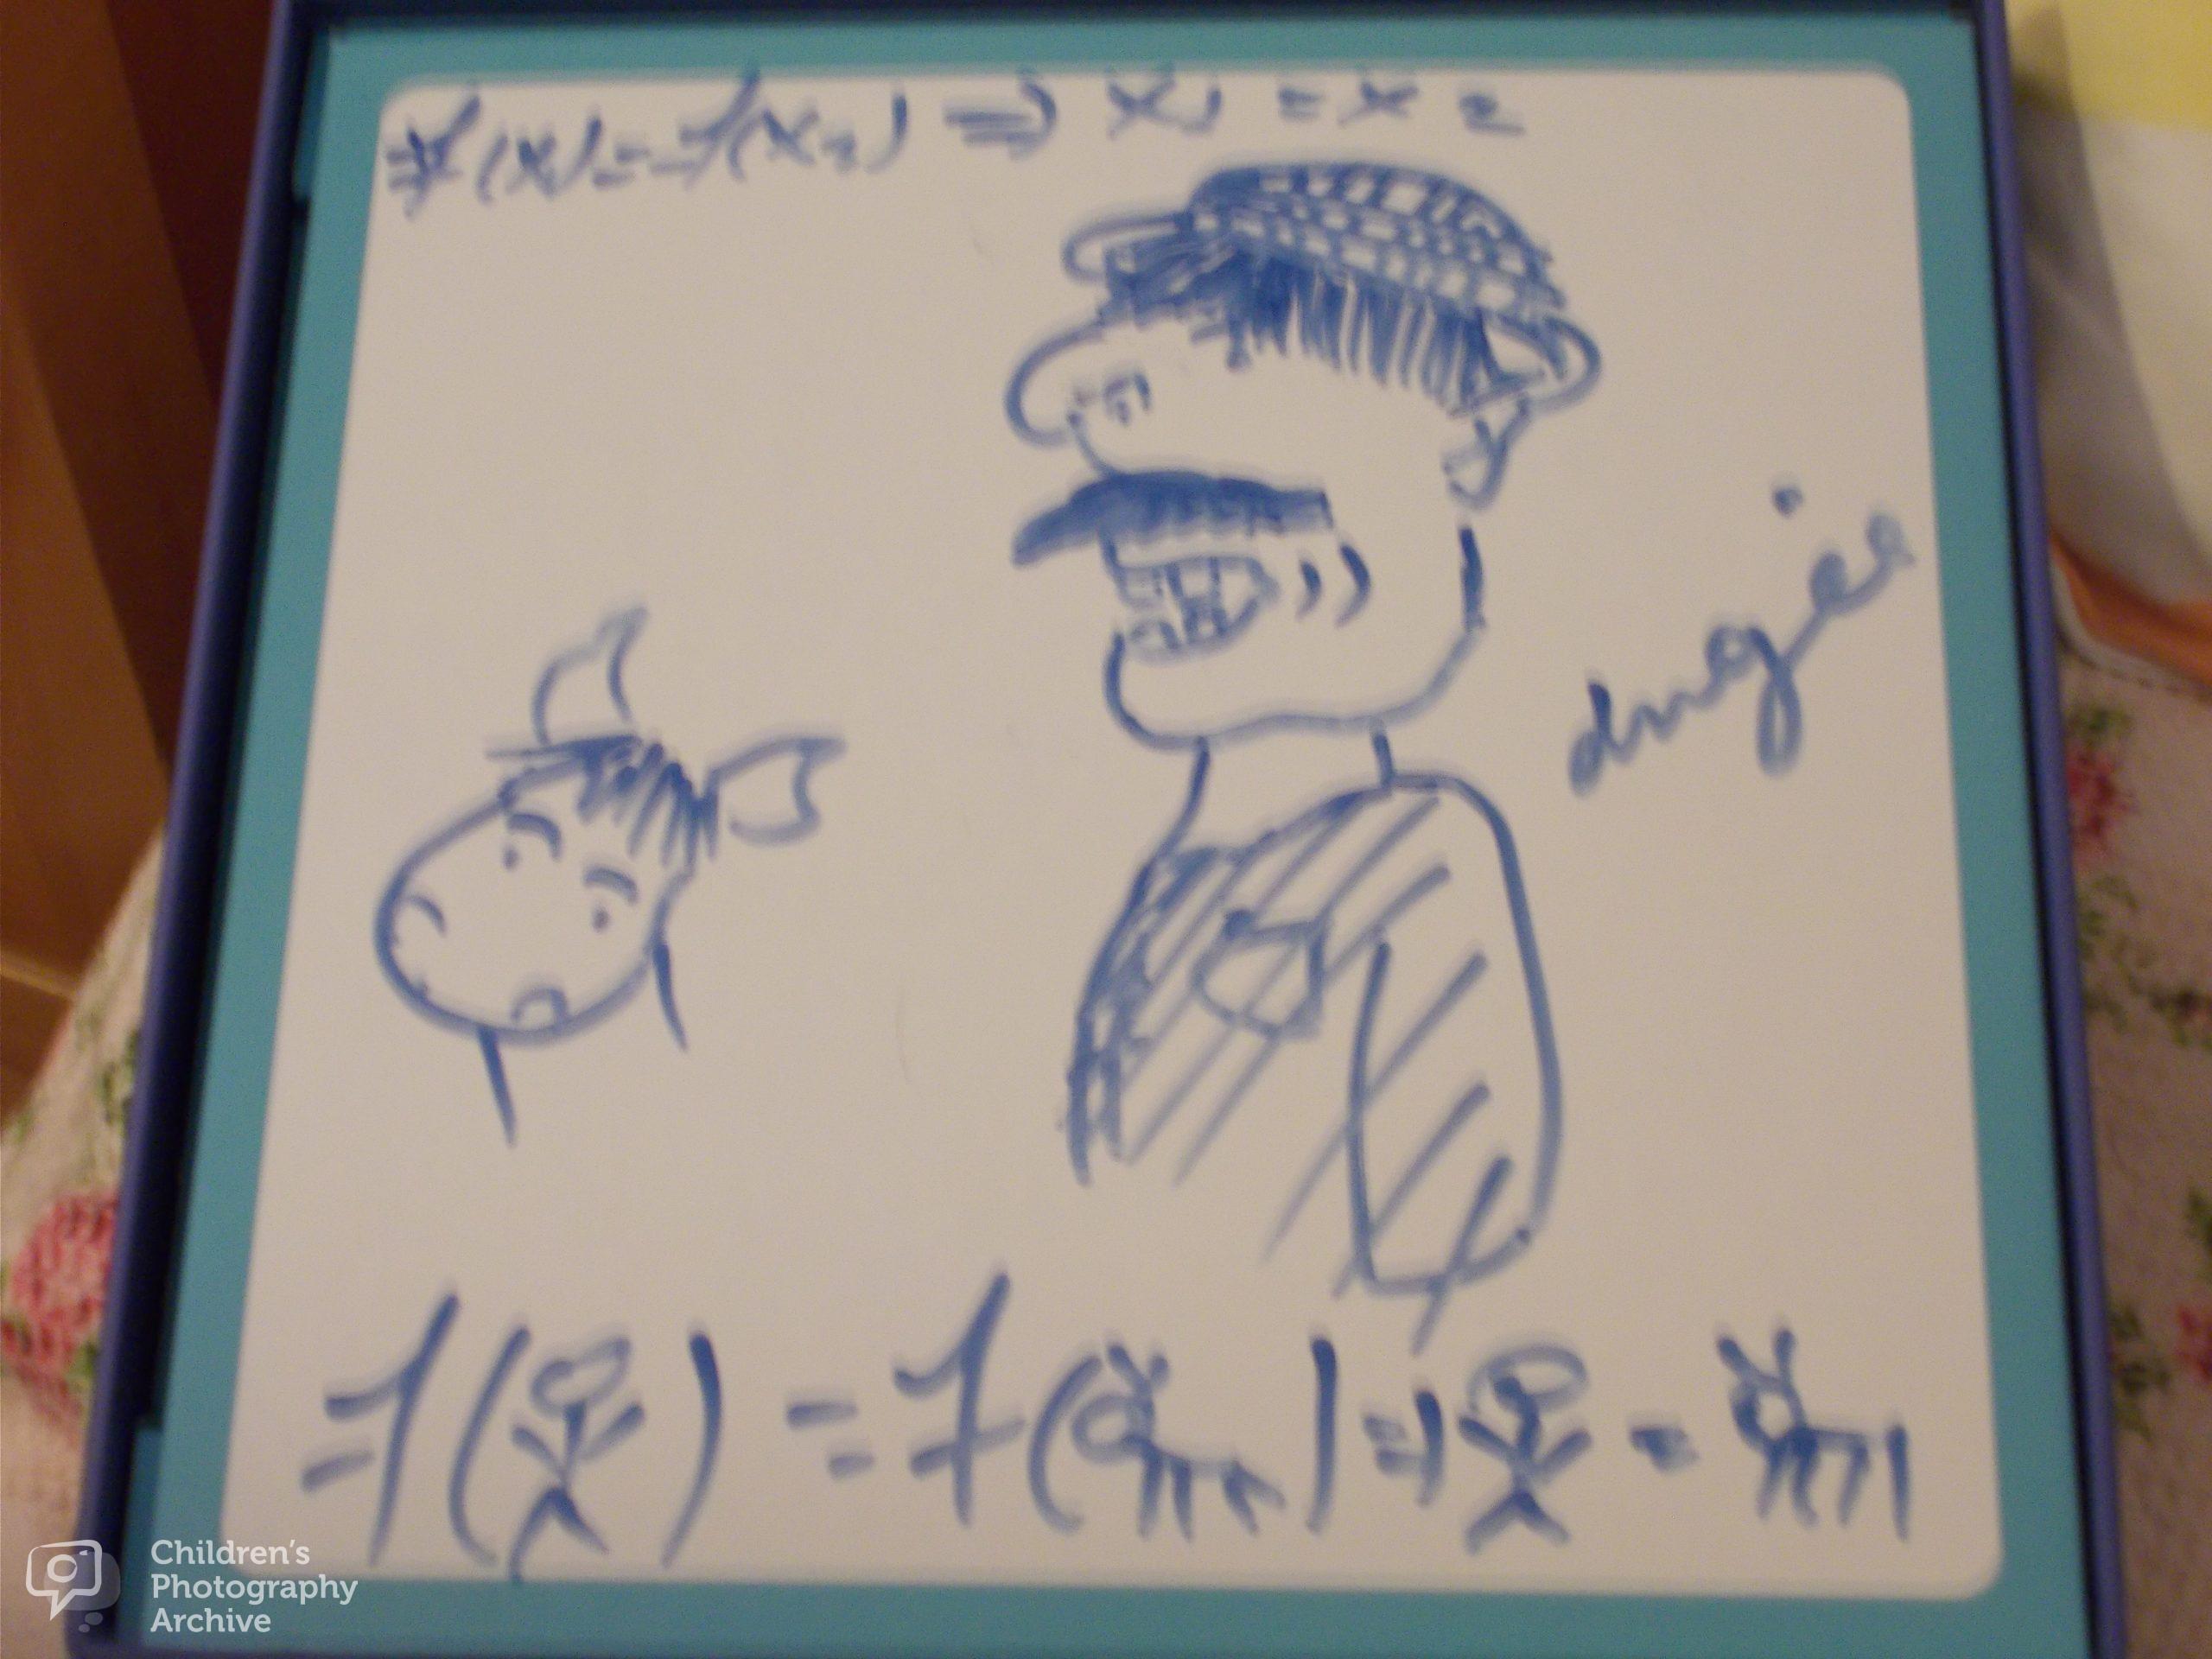 f(x₁)=f(x₂) ⇒ x₁ = x₂
f( ) = f( ) ⇒ =
Children's
Photography
Archive